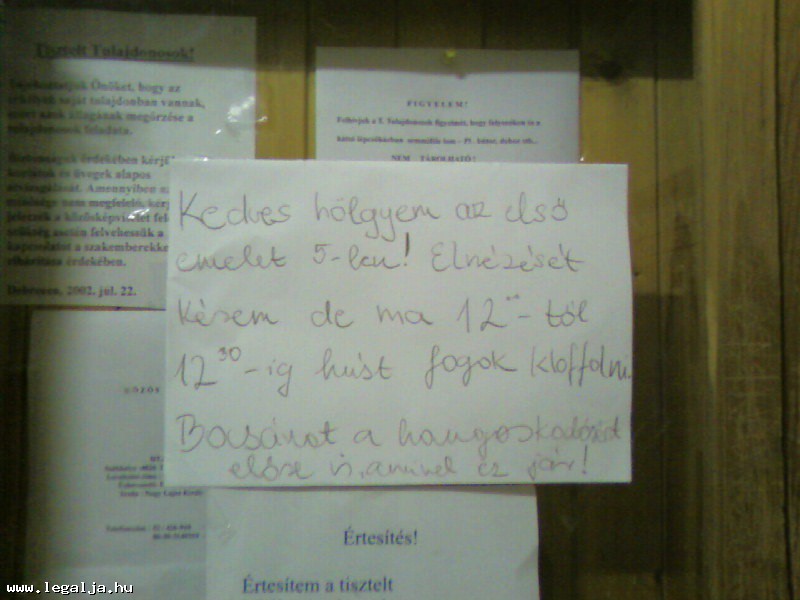 Tisztelt Tulajdonosok!
Tájékoztatjuk Önöket, hogy az
erkélyek saját tulajdonban vannak,
ezért azok állagának megőrzése a
tulajdonosok feladata.
érdekében kérjük
korlátok és üvegek alapos
átvizsgálását. Amennyiben
minősége nem megfelelő,
jelezzék a közösképviselet
szükség esetén felvehessük a
kapcsolatot a szakemberekkel
elhárítása érdekében.
Debrecen, 2002. júl. 22.
FIGYELEM!
Felhívjuk a T. Tulajdonosok figyelmét, hogy folyosókon és a
hátsó lépcsőházban semmiféle lom - Pl. bútor, doboz stb...
NEM TÁROLHATÓ!
Kedves hölgyem az első
emelet 5-ben! Elnézését
kérem de ma 12⁰⁰-tól
12³⁰-ig húst fogok kloffolni.
Bocsánat a hangoskodásért
előre is, amivel ez jár!
Értesítés!
Értesítem a tisztelt
www.legalja.hu